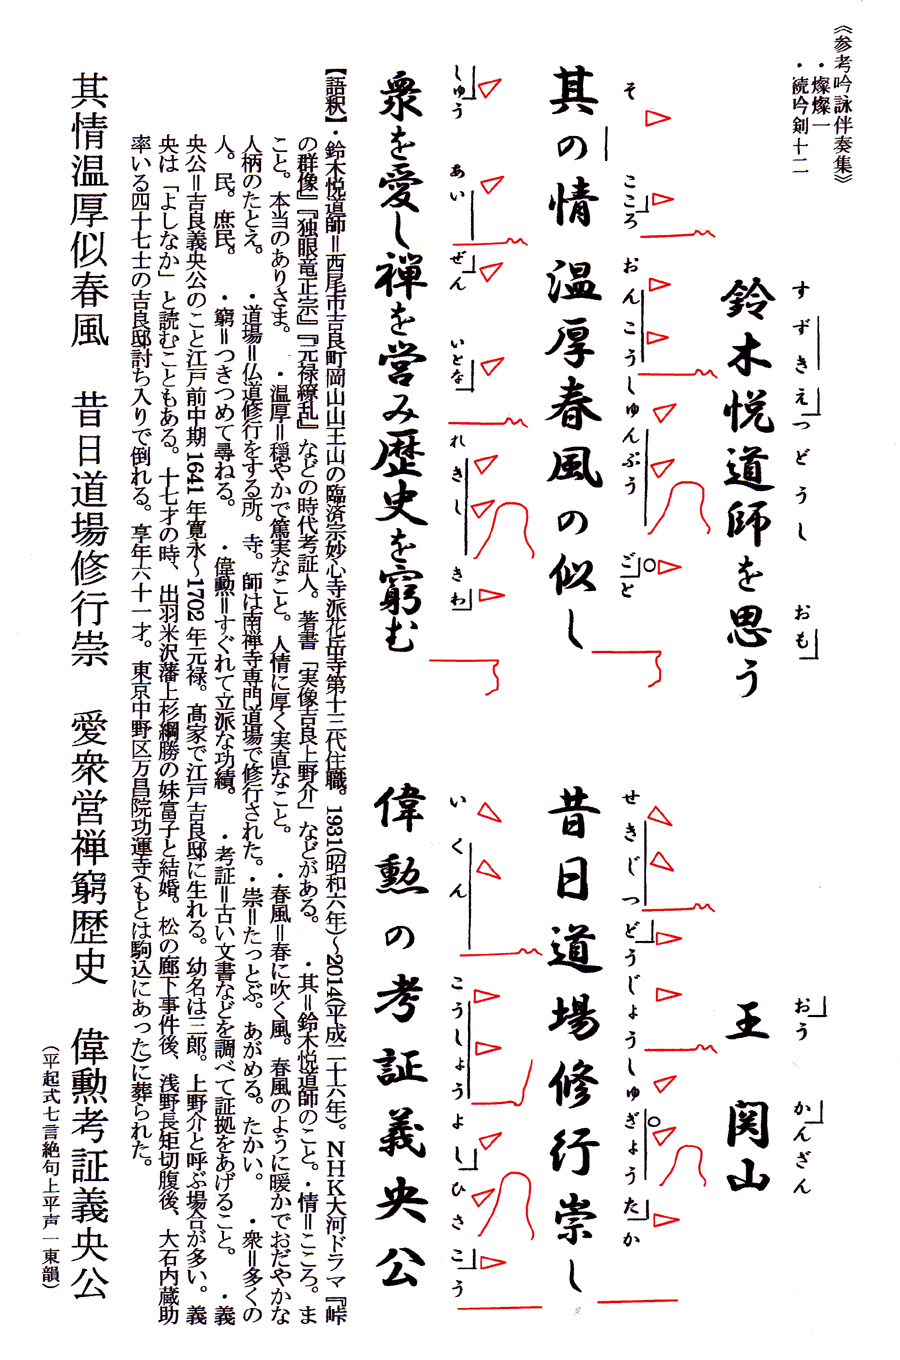 《参考吟詠伴奏集》
・燦燦一
・続吟剣十二
鈴木悦道師を思う
すずきえつどうし おも
王 関山
おう かんざん
其の情 温厚春風の似し
そ こころ おんこうしゅんぷう ごと
昔日道場修行崇し
せきじつどうじょうしゅぎょうたか
衆を愛し禅を営み歴史を窮む
しゅう あい ぜん いとな れきし きわ
偉勲の考証義央公
いくん こうしょうよしひさこう
【語釈】・鈴木悦道師＝西尾市吉良町岡山山王山の臨済宗妙心寺派花岳寺第十三代住職。1931(昭和六年)～2014(平成二十六年)。ＮＨＫ大河ドラマ『峠
の群像』『独眼竜正宗』『元禄繚乱』などの時代考証人。著書「実像吉良上野介」などがある。 ・其＝鈴木悦道師のこと。・情＝こころ。ま
こと。本当のありさま。 ・温厚＝穏やかで篤実なこと。人情に厚く実直なこと。 ・春風＝春に吹く風。春風のように暖かでおだやかな
人柄のたとえ。 ・道場＝仏道修行をする所。寺。師は南禅寺専門道場で修行された。・崇＝たっとぶ。あがめる。たかい。 ・衆＝多くの
人。民。庶民。 ・窮＝つきつめて尋ねる。 ・偉勲＝すぐれて立派な功績。 ・考証＝古い文書などを調べて証拠をあげること。 ・義
央公＝吉良義央公のこと江戸前中期1641年寛永～1702年元禄。髙家で江戸吉良邸に生れる。幼名は三郎。上野介と呼ぶ場合が多い。義
央は「よしなか」と読むこともある。十七才の時、出羽米沢藩上杉綱勝の妹富子と結婚。松の廊下事件後、浅野長矩切腹後、大石内蔵助
率いる四十七士の吉良邸討ち入りで倒れる。享年六十一才。東京中野区万昌院功運寺(もとは駒込にあった)に葬られた。
其情温厚似春風 昔日道場修行崇 愛衆営禅窮歴史 偉勲考証義央公
（平起式七言絶句上平声一東韻）